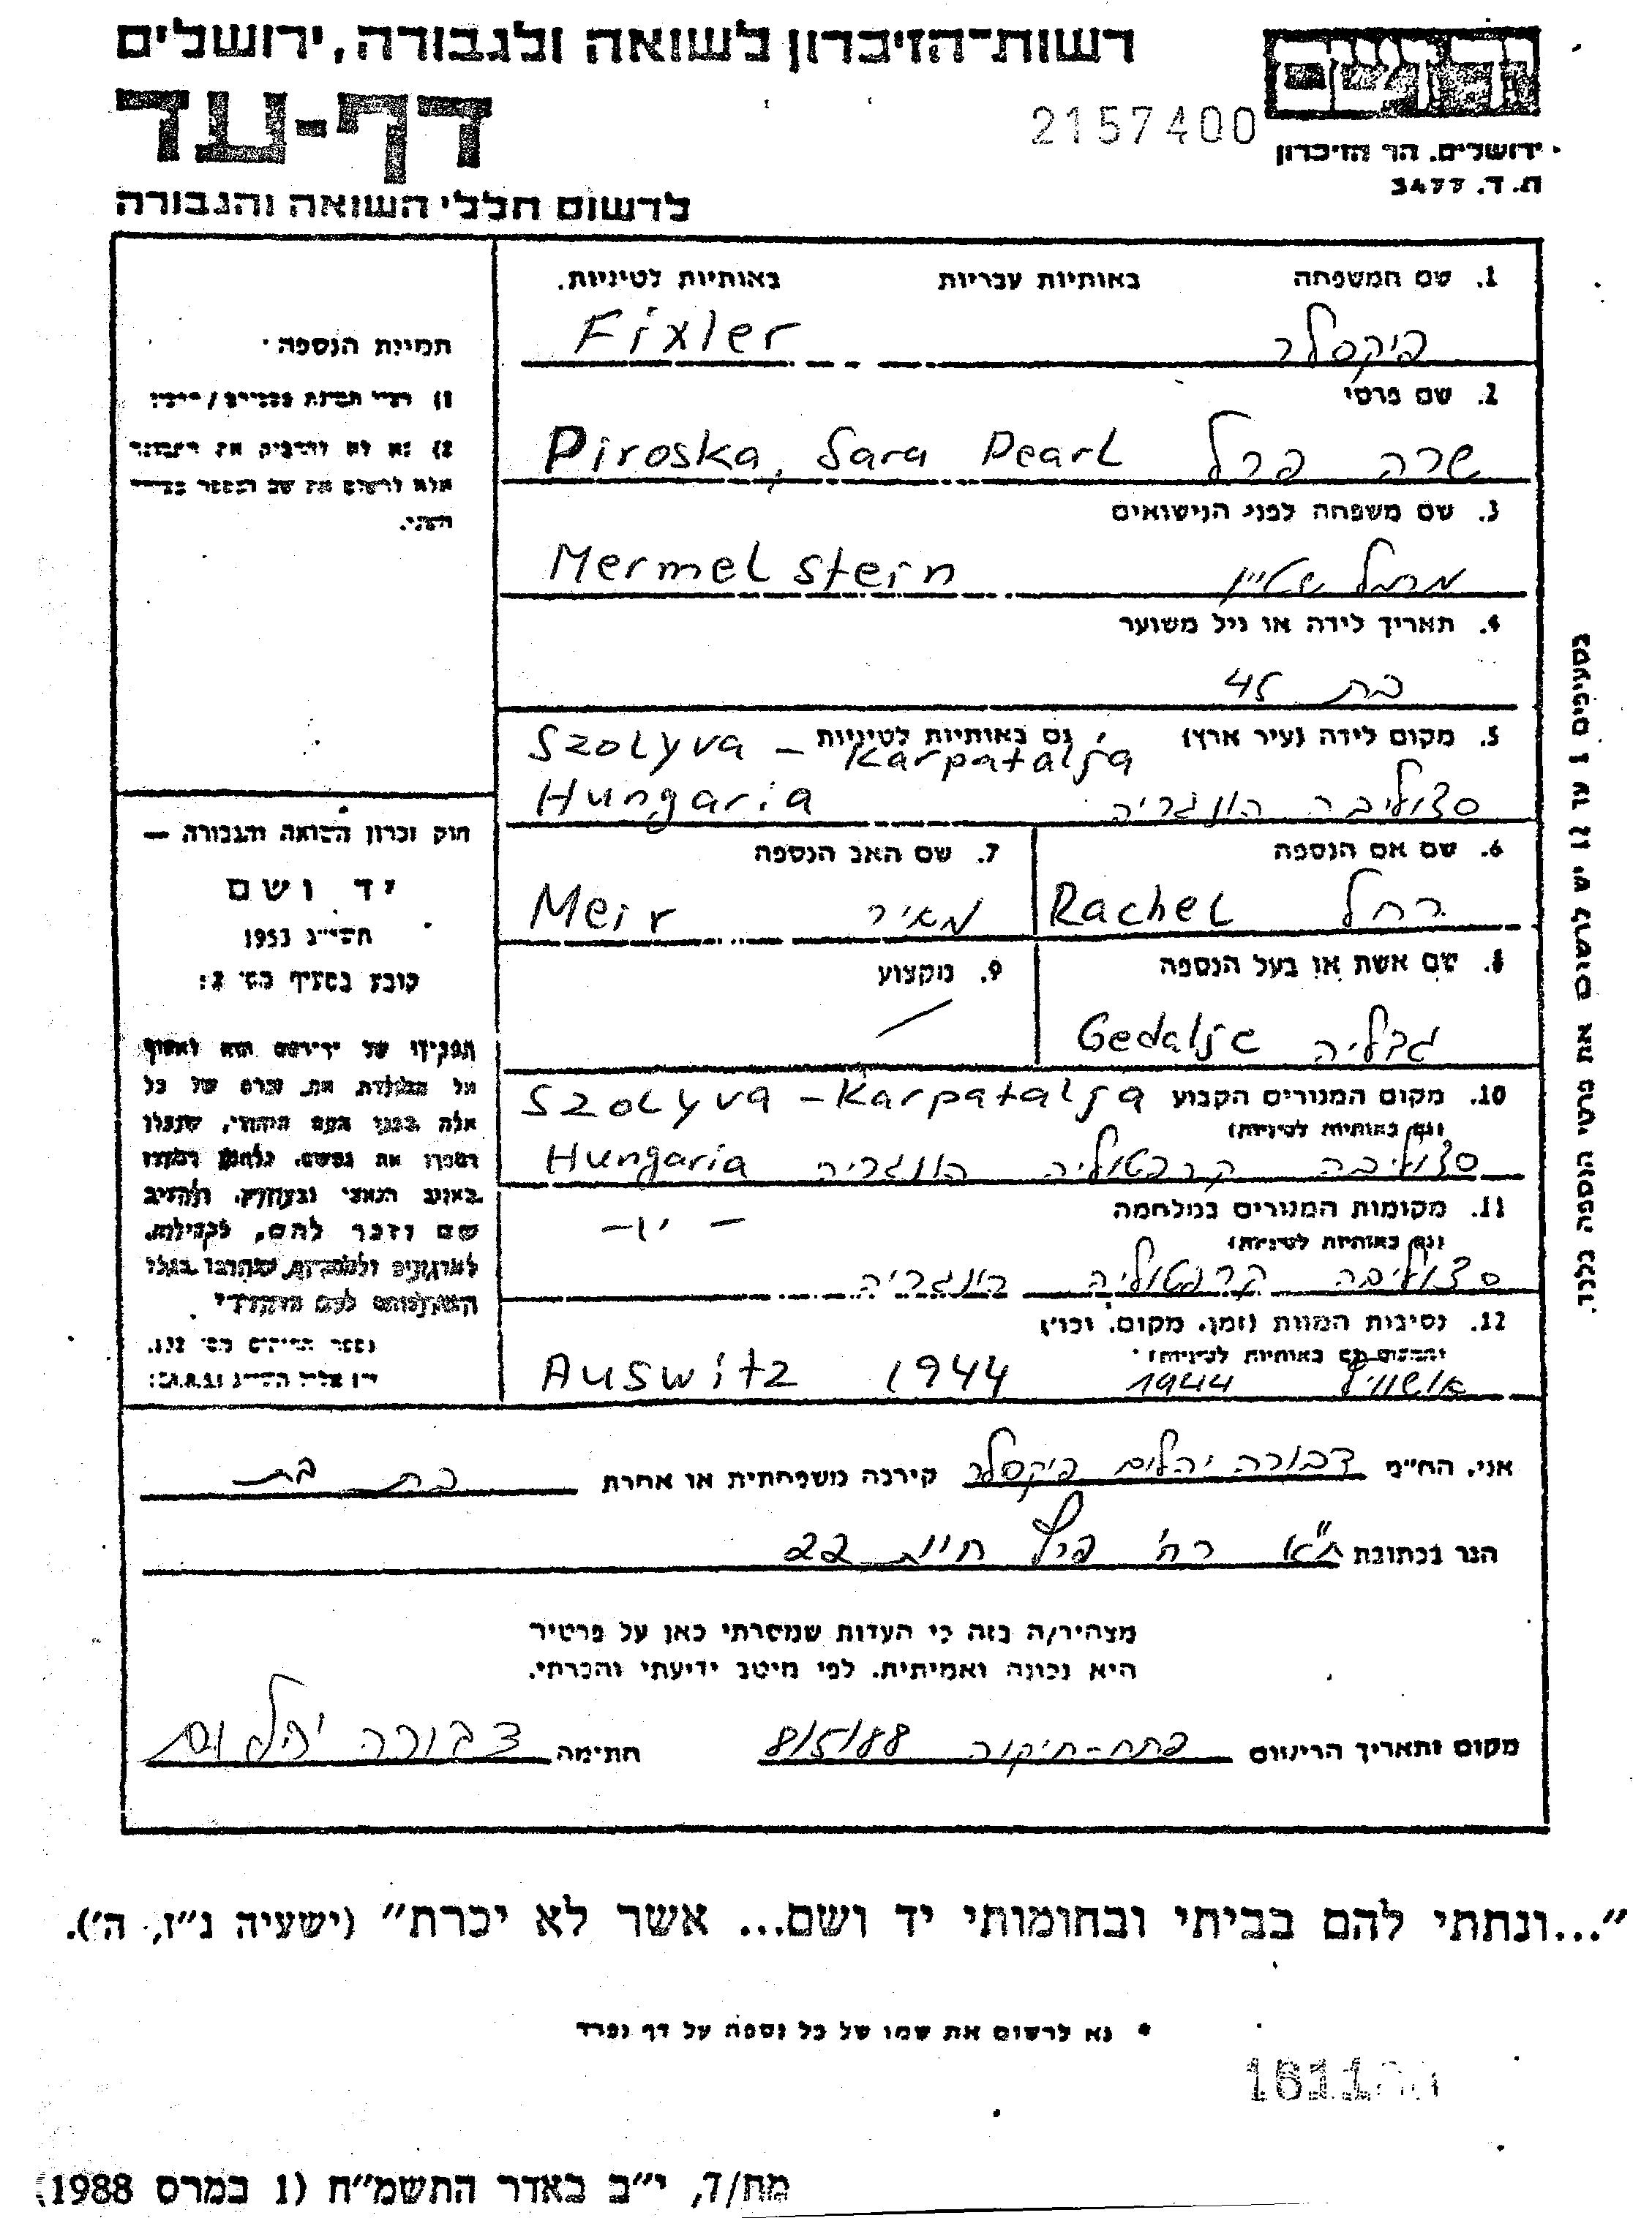 רשות־הזיכרון לשואה ולגבורה, ירושלים
דף-עד
2157400
ירושלים. הר הזיכרון
ת. ד. 3477
לרשום חללי השואה והגבורה
1. שם המשפחה באותיות עבריות באותיות לטיניות.
פיקסלר Fixler
2. שם פרטי
שרה פרל Piroska, Sara Pearl
3. שם משפחה לפני הנישואים
מרמל שטיין Mermel stern
4. תאריך לידה או גיל משוער
בת 45
5. מקום לידה (עיר ארץ) גם באותיות לטיניות Szolyva - Karpatalja
סצוליבה הונגריה Hungaria
6. שם אם הנספה
רחל Rachel
7. שם האב הנספה
מאיר Meir
8. שם אשת או בעל הנספה
גדליה Gedalje
9. מקצוע
10. מקום המגורים הקבוע Szolyva - Karpatalja
(גם באותיות לטיניות)
סצוליבה קרפטוליה הונגריה Hungaria
11. מקומות המגורים במלחמה
(גם באותיות לטיניות)
סצוליבה קרפטוליה הונגריה
12. נסיבות המוות (זמן, מקום, וכו')
(המקום גם באותיות לטיניות)
אושוויץ 1944 Auswitz 1944
תמונת הנספה
חוק זכרון השואה והגבורה —
יד ושם
תשי"ג 1953
קובע בסעיף מס' 2:
תפקידו של יד־ושם הוא לאסוף
אל המולדת את זכרם של כל
אלה מבני העם היהודי, שנפלו
ומסרו את נפשם, נלחמו ומרדו
באויב הנאצי ובעוזריו, ולהציב
שם וזכר להם, לקהילות,
לארגונים ולמוסדות שנחרבו בגלל
השתייכותם לעם היהודי
בסעיפים 1 עד 12 יש לרשום את פרטי הנספה בלבד.
אני, הח"מ דבורה יהלום פיקסלר קירבה משפחתית או אחרת בת בת
הגר בכתובת ת"א רח' פרץ חיות 22
מצהיר/ה בזה כי העדות שמסרתי כאן על פרטיה
היא נכונה ואמיתית, לפי מיטב ידיעתי והכרתי.
מקום ותאריך הרישום פתח-תיקוה 8/5/88 חתימה דבורה יהלום
"...ונתתי להם בביתי ובחומותי יד ושם... אשר לא יכרת" (ישעיה נ"ז, ה').
* נא לרשום את שמו של כל נספה על דף נפרד
מח/7, י"ב באדר התשמ"ח (1 במרס 1988)